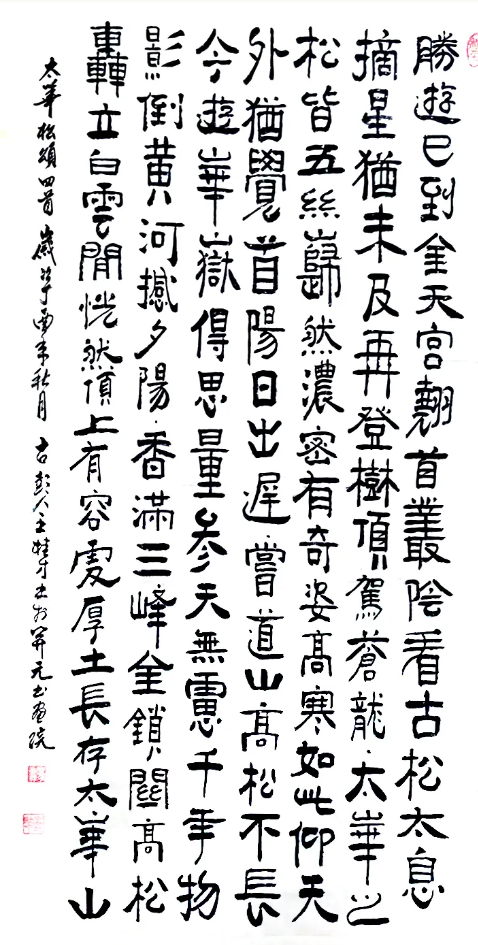 勝遊已到金天宮翹首叢陰看古松太息
摘星猶未及再登樹頂駕蒼龍太華之
松皆五絲巋然濃密有奇姿高寒如此仰天
外猶覺首陽日出遲嘗道山高松不長
今遊華嶽得思量參天無慮千年物
影倒黃河撼夕陽香滿三峰金鎖關高松
轟立白雲間恍然頂上有容處厚土長存太華山
太華松頌四首 歲次丁酉年秋月 古彭人王桂才書於開元書畫院